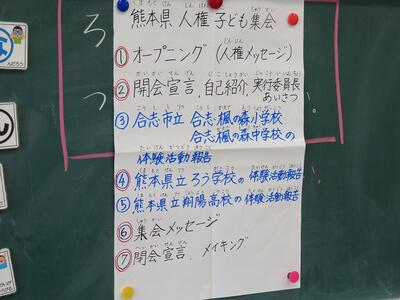 熊本県 人権 子ども 集会
① オープニング (人権メッセージ)
② 開会宣言、自己紹介、実行委員長
あいさつ
③ 合志市立 合志楓の森小学校
合志楓の森中学校の
体験活動報告
④ 熊本県立ろう学校の体験活動報告
⑤ 熊本県立翔陽高校の体験活動報告
⑥ 集会メッセージ
⑦ 閉会宣言、メイキング
ろ
つ
ん